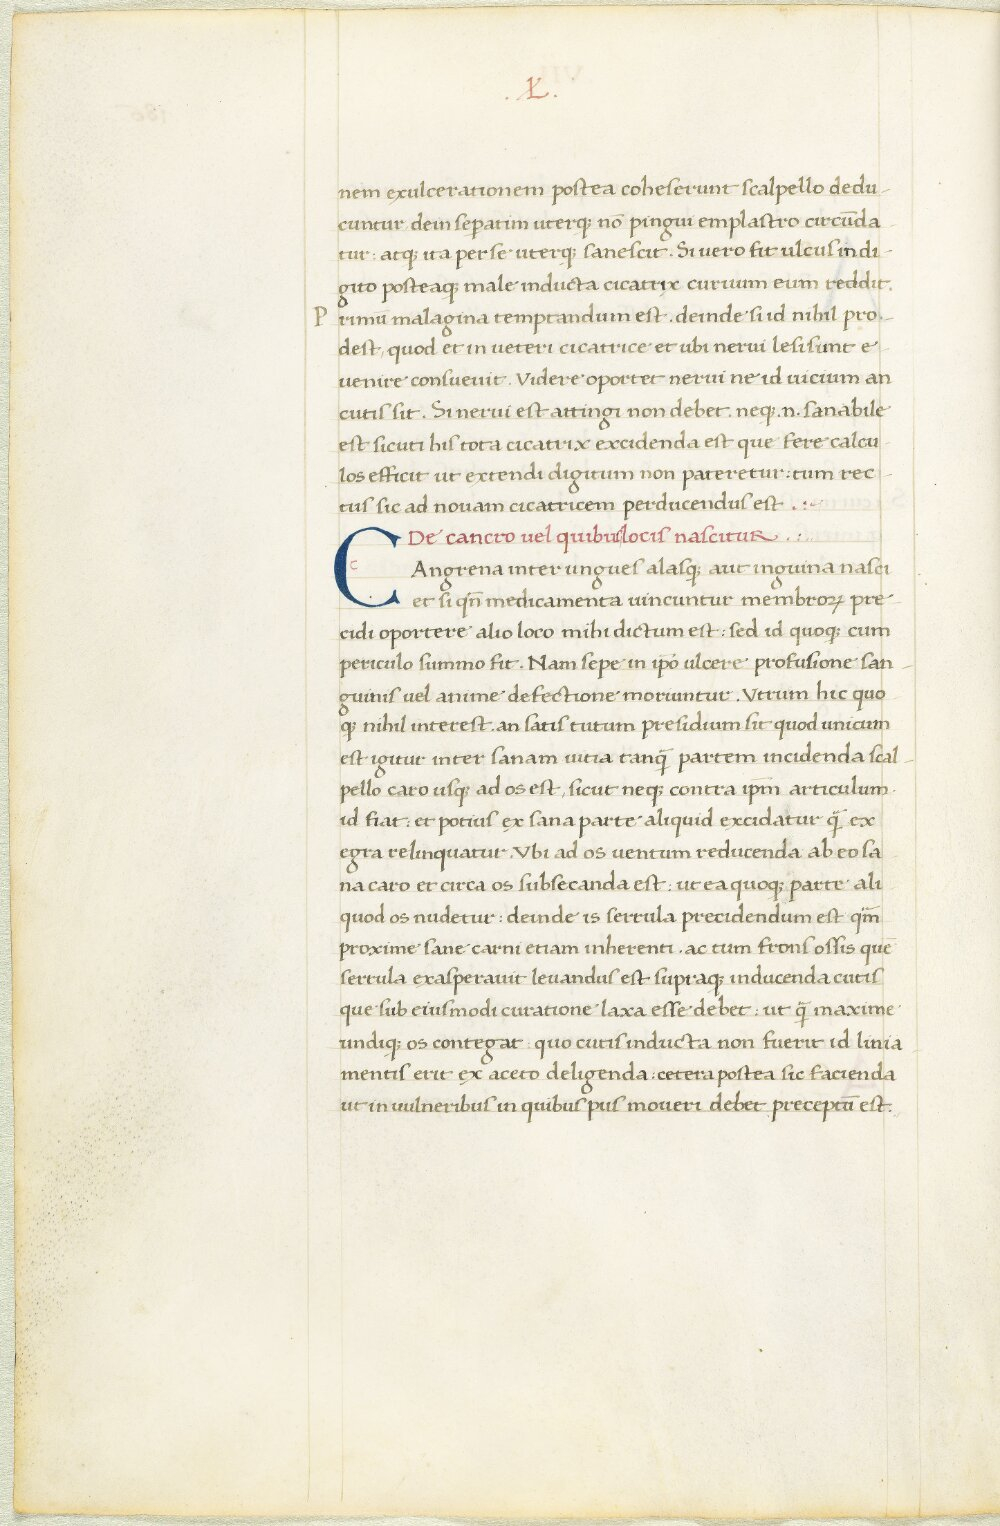 .XL.
nem exulcerationem postea coheserunt scalpello dedu-
cuntur. dein sep̄atim uterq; nō pingui emplastro circūda
tur: atq; ita per se uterq; sanescit. Si uero fit ulcus in di-
gito posteaq; male inducta cicatrix curuum eum reddit.
Primū malagina temptandum est. deinde si id nihil pro-
dest, quod et in ueteri cicatrice et ubi nerui lesi sunt e-
uenire consueuit. Videre oportet nerui ne id uicium an
cutis sit. Si nerui est attingi non debet. neq; .n. sanabile
est sicuti his tota cicatrix excidenda est que fere calcu-
los efficit ut extendi digitum non pateretur: tum rec-
tus sic ad nouam cicatricem perducendus est .:~
De cancro uel quibus locis nascitur ..:
c
CAngrena inter ungues alasq; aut inguina nasci
et si qn̄ medicamenta uincuntur membroꝝ pre-
cidi oportere alio loco mihi dictum est: sed id quoq; cum
periculo summo fit. Nam sepe in ip̄o ulcere profusione san-
guinis uel anime defectione moriuntur. Vtrum hic quo
q; nihil interest. an satis tutum presidium sit quod unicum
est igitur inter sanam uitia tanq̄ partem incidenda scal-
pello caro usq; ad os est, sicut neq; contra ip̄m articulum.
id fiat: et potius ex sana parte aliquid excidatur q̄ ex
egra relinquatur. Vbi ad os uentum reducenda ab eo sa-
na caro et circa os subsecanda est: ut ea quoq; parte ali
quod os nudetur: deinde is serrula precidendum est qm̄
proxime sane carni etiam inherenti. ac tum frons ossis quē
serrula exasperauit leuandus est supraq; inducenda cutis
que sub eiusmodi curatione laxa esse debet: ut q̄ maxime
undiq; os contegat: quo cutis inducta non fuerit id linia
mentis erit ex aceto deligenda: cetera postea sic facienda
ut in uulneribus in quibus pus moueri debet preceptū est.